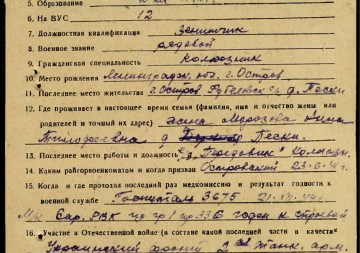 5. Образование
6. На ВУС 12
7. Должностная квалификация зенитчик
8. Военное звание рядовой
9. Гражданская специальность колхозник
10. Место рождения Ленинградск. обл. г. Остров
11. Последнее место жительства г. Остров д. Пески
12. Где проживает в настоящее время семья (фамилия, имя и отчество жены или
родителей и точный их адрес) жена Морозова Нина
Тимофеевна д. Пески.
13. Последнее место работы и должность колхозн.
14. Каким райгорвоенкоматом и когда призван Островский 23-6-41 г.
15. Когда и где проходил последний раз медкомиссию и результат годности к
военной службе Госпиталь 3675
РВК годен к строевой
16. Участие в Отечественной войне (в составе какой последней части в качестве
Украинский фронт 2ая танк. арм.